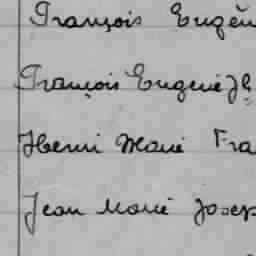 François Eugèn
François Eugène Jh
Henri Marie Fra
Jean Marie Josep